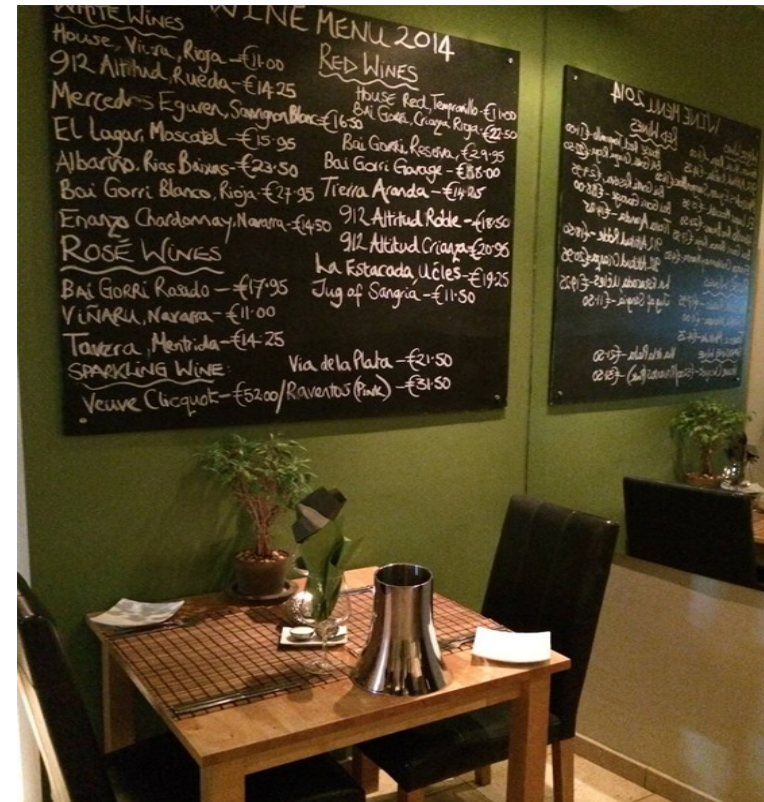 WINE MENU 2014
WHITE WINES
House, Viura, Rioja - €11.00
912 Altitud, Rueda - €14.25
Mercedes Eguren, Sauvignon Blanc - €16.50
El Lagar, Moscatel - €15.95
Albariño. Rias Baixas - €23.50
Bai Gorri Blanco, Rioja - €27.95
Enanzo Chardonnay, Navarra - €14.50
ROSÉ WINES
BAI GORRI Rosado - €17.95
VIÑARU, Navarra - €11.00
Tavera, Mentrida - €14.25
SPARKLING WINE:
Veuve Clicquot - €52.00/Raventos (Pink) - €31.50
Via de la Plata - €21.50
RED WINES
House Red, Tempranillo - €11.00
Bai Gorri, Crianza Rioja - €22.50
Bai Gorri, Reserva, €29.95
Bai Gorri Garage - €88.00
Tierra Aranda - €14.25
912 Altitud Roble - €18.50
912 Altitud Crianza - €20.95
La Estacada, Ucles - €19.25
Jug of Sangria - €11.50